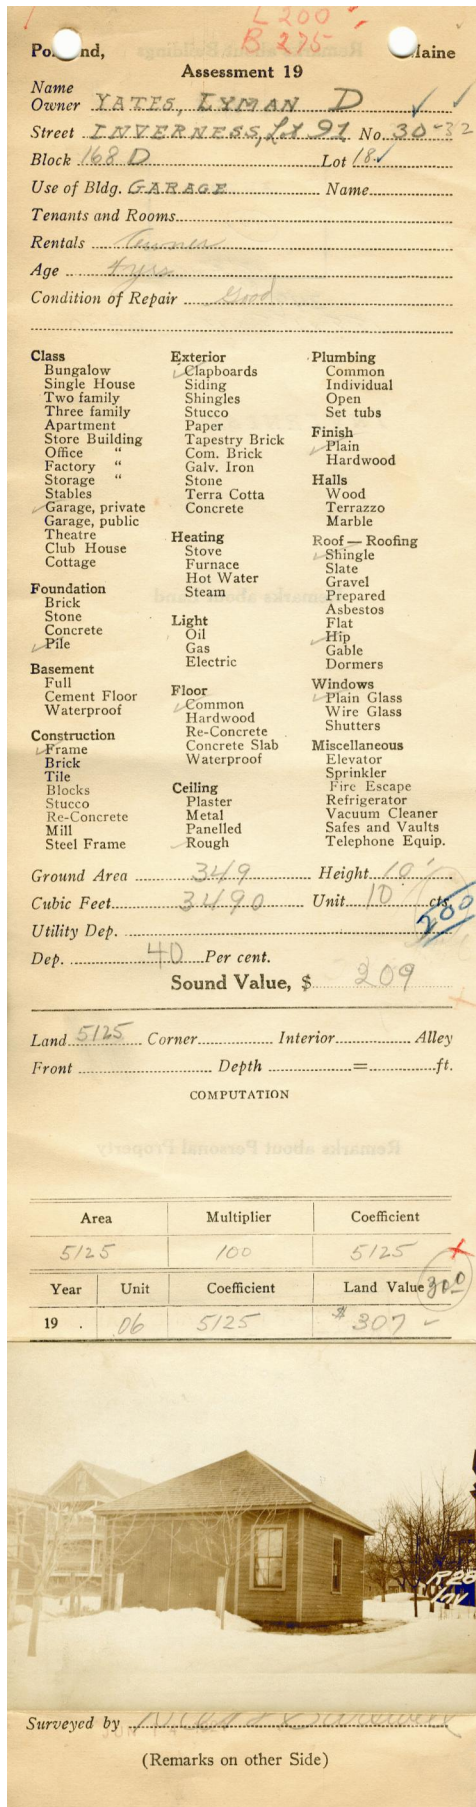 L 200
B 275
Po nd, Maine
Assessment 19
Name
Owner YATES, LYMAN D
Street INVERNESS, Lt 91 No. 30-32
Block 168 D Lot 18
Use of Bldg. GARAGE Name
Tenants and Rooms
Rentals Owner
Age 4 yrs
Condition of Repair Good
Class
Bungalow
Single House
Two family
Three family
Apartment
Store Building
Office "
Factory "
Storage "
Stables
✓ Garage, private
Garage, public
Theatre
Club House
Cottage
Foundation
Brick
Stone
Concrete
✓ Pile
Basement
Full
Cement Floor
Waterproof
Construction
✓ Frame
Brick
Tile
Blocks
Stucco
Re-Concrete
Mill
Steel Frame
Exterior
✓ Clapboards
Siding
Shingles
Stucco
Paper
Tapestry Brick
Com. Brick
Galv. Iron
Stone
Terra Cotta
Concrete
Heating
Stove
Furnace
Hot Water
Steam
Light
Oil
Gas
Electric
Floor
✓ Common
Hardwood
Re-Concrete
Concrete Slab
Waterproof
Ceiling
Plaster
Metal
Panelled
✓ Rough
Plumbing
Common
Individual
Open
Set tubs
Finish
✓ Plain
Hardwood
Halls
Wood
Terrazzo
Marble
Roof — Roofing
✓ Shingle
Slate
Gravel
Prepared
Asbestos
Flat
✓ Hip
Gable
Dormers
Windows
✓ Plain Glass
Wire Glass
Shutters
Miscellaneous
Elevator
Sprinkler
Fire Escape
Refrigerator
Vacuum Cleaner
Safes and Vaults
Telephone Equip.
Ground Area 349 Height 10'
Cubic Feet 3490 Unit 10 cts.
200
Utility Dep.
Dep. 40 Per cent.
Sound Value, $ 209
Land 5125 Corner Interior Alley
Front Depth = ft.
COMPUTATION
Remarks about Personal Property
Area Multiplier Coefficient
5125 100 5125
Year Unit Coefficient Land Value 300
19 . 06 5125 $ 307
R28
Surveyed by
(Remarks on other Side)